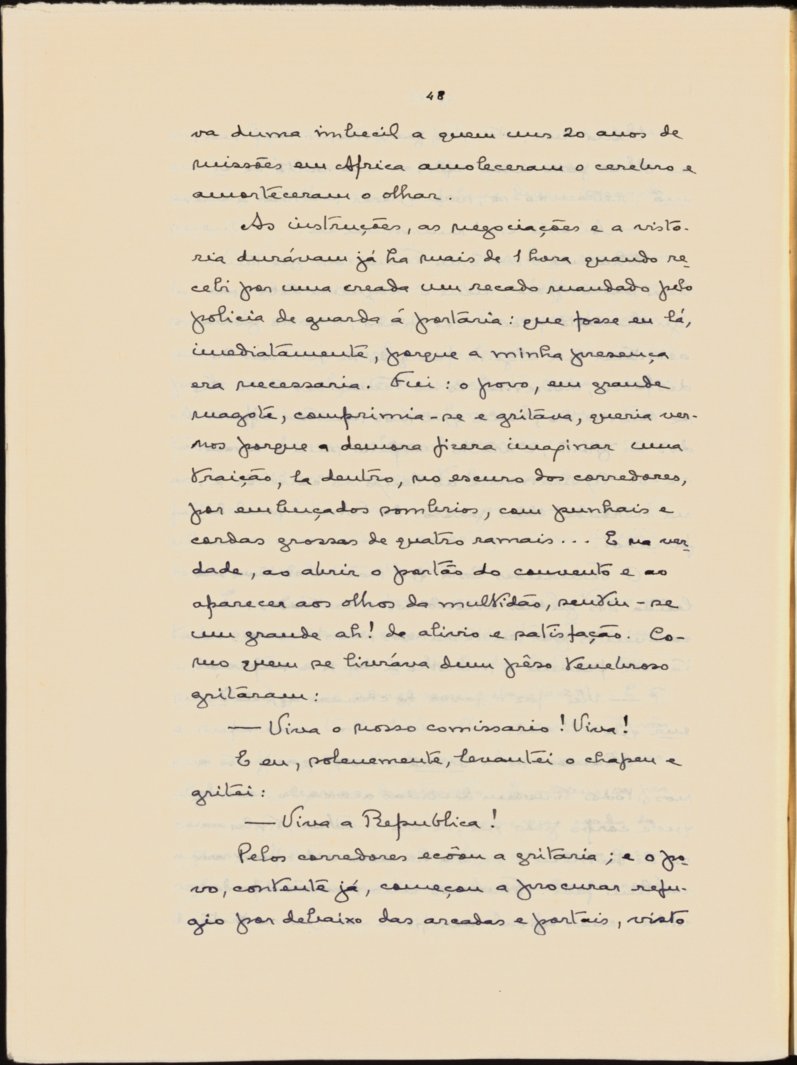 48
va duma imbecil a quem uns 20 anos de
missões em Africa amoleceram o cerebro e
amorteceram o olhar.
As instruções, as negociações e a visto-
ria durávam já ha mais de 1 hora quando re-
cebi por uma creada um recado mandado pelo
policia de guarda á portaria: que fosse eu lá,
imediatamente, porque a minha presença
era necessaria. Fui: o povo, em grande
magote, comprimia-se e gritava, queria ver-
nos porque a demora fizera imaginar uma
traição, la dentro, no escuro dos corredores,
por embuçados sombrios, com punhais e
cordas grossas de quatro ramais... E na ver-
dade, ao abrir o portão do convento e ao
aparecer aos olhos da multidão, sentiu-se
um grande ah! de alivio e satisfação. Co-
mo quem se livráva dum pêso tenebroso
gritaram:
— Viva o nosso comissario! Viva!
E eu, solenemente, levantei o chapeu e
gritei:
— Viva a Republica!
Pelos corredores ecôou a gritaria; e o po-
vo, contente já, começou a procurar refu-
gio por debaixo das arcadas e portais, visto